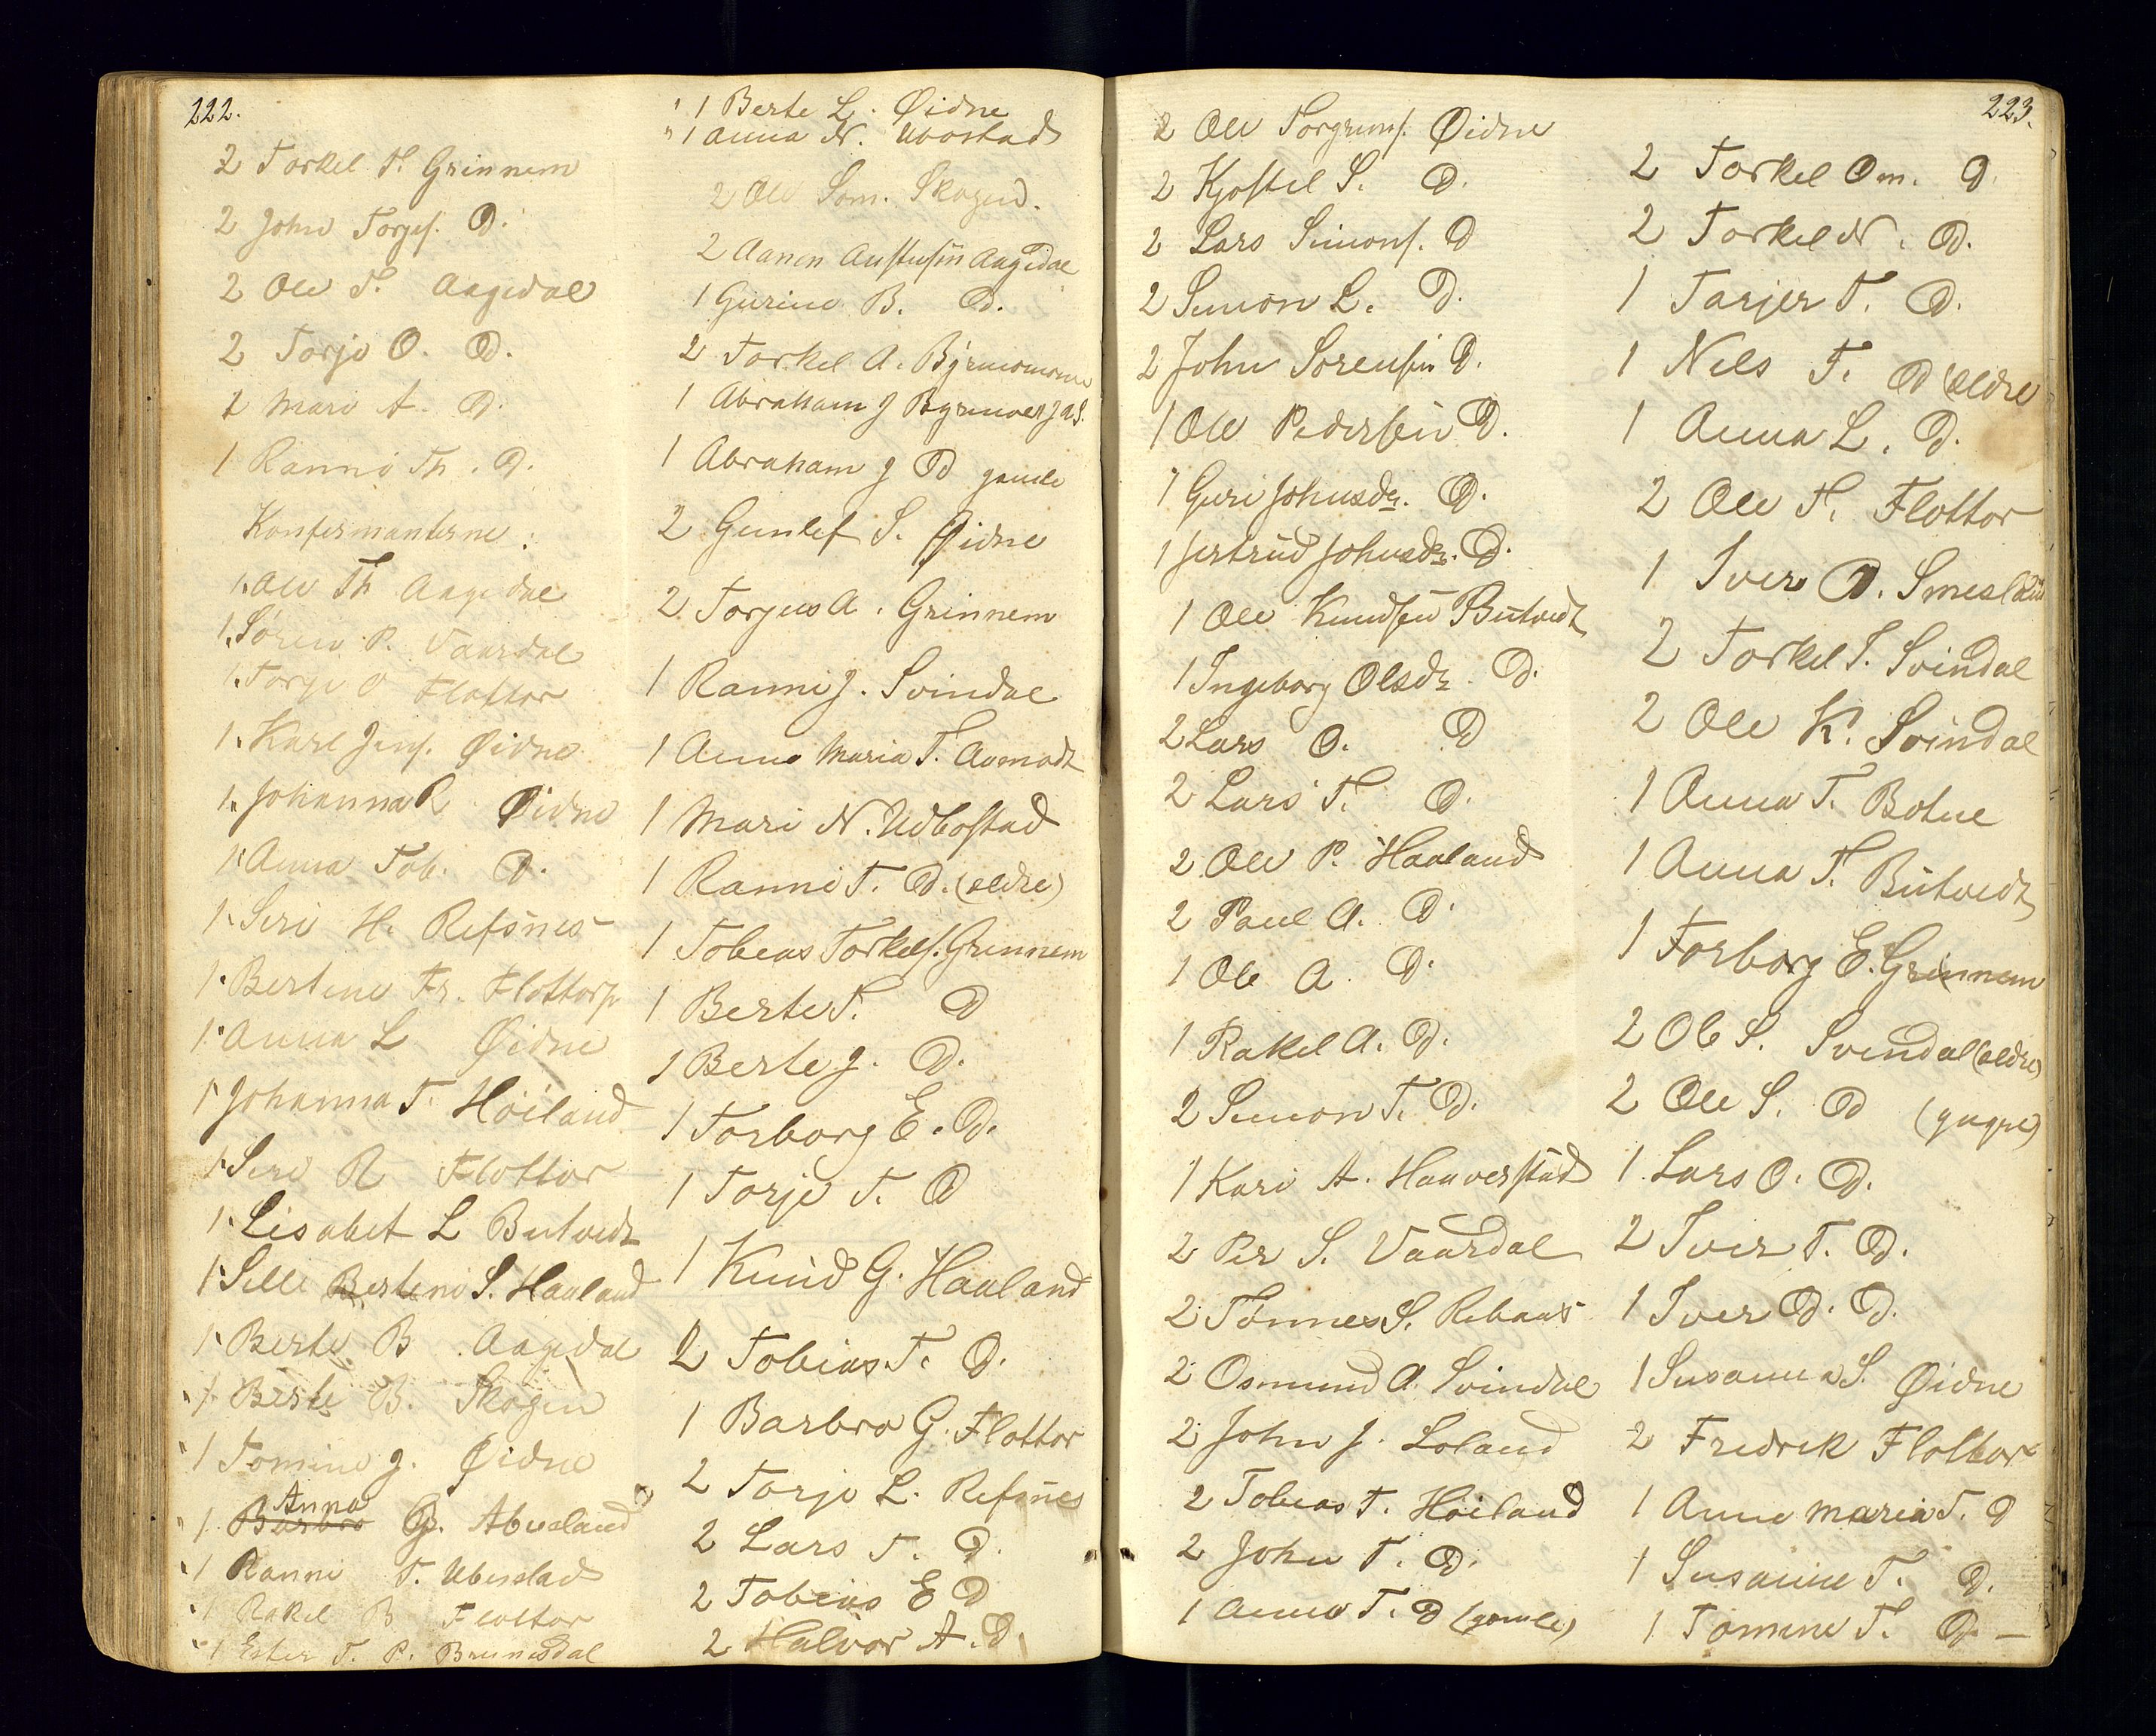 222.
2 Torkel T. Grinnem
2 John Torjes. D.
2 Ole T. Aagedal
2 Torje O. D.
1 Mari A. D.
1 Ranni Th. D.
Konfirmanterne:
1. Ole Th Aagedal
1. Søren P. Vaardal
1. Torje O Flottor
1. Karl Jens. Øidne
1. Johanna R Øidne
1. Anna Tob. D.
1. Seri H. Refsnes
1. Bertine Fr. Flottorp
1. Anna L Øidne
1. Johanna T. Høiland
1. Seri R Flottor
1. Lisabet L Butvedt
1. Sille Berteni S. Haaland
1. Berte B Aagedal
1. Berte B. Skogen
1 Tomine J. Øidne
Anna
1. Barbro G. Abusland
1 Ranni T. Ubostad
1 Rakel B Flottor
1 Ester T. P. Brunesdal
1 Berte L. Øidne
1 Anna N. Ubostad
2 Ole Som. Skogen.
2 Aanen Austusin Aagedal
1 Gurine B. D.
2 Torkel A.
1 Abraham J
1 Abraham J D gamle
2 Gunlef S. Øidne
2 Torjus A. Grinnem
1 Ranni J. Svindal
1 Anne Maria T. Aamodt
1 Mari N. Udbostad
1 Ranni T. D. (eldre)
1 Tobias Torkels. Grinnem
1 Berte T. D
1 Berte J. D.
1 Torborg E. D.
1 Torje T. D
1 Knud G. Haaland
2 Tobias T. D.
1 Barbro G. Flottor
2 Torje L. Refsnes
2 Lars T. D.
2 Tobias E D
2 Halvor A. D.
223.
2 Ole Torgrims. Øidne
2 Kjostel S. D.
2 Lars Simons. D
2 Simon L. D.
2 John Sorensen D.
1 Ole Pedersen D.
1 Guri Johnsdr. D.
1 Jertrud Johnsdr. D.
1 Ole Knudsen Butvedt
1 Ingeborg Olsdr. D.
2 Lars O. D
2 Lars T. D.
2 Ole P. Haaland
2 Paul A. D.
1 Ole A. D.
1 Rakel A. D.
2 Simon T. D.
1 Kari A. Haaverstad
2 Per S. Vaardal
2 Tønnes S. Rebaas
2 Osmund A. Svindal
2 John J. Loland
2 Tobias T. Høiland
2 John T. D.
1 Anna T. D (gamle)
2 Torkel Om. D.
2 Torkel N. D.
1 Tarjer T. D.
1 Nels T. D (eldre
1 Anna L. D.
2 Ole T. Flottor
1 Iver D. Smeslau
2 Torkel T. Svindal
2 Ole K. Svindal
1 Anna T. Botne
1 Anna T. Butvedt
1 Torborg E. Grinnem
2 Ole S. Svendal (eldre)
2 Ole S. D (yngre)
1 Lars O. D.
2 Iver T. D.
1 Iver D. D.
1 Susanna S. Øidne
2 Fredrek Flottor
1 Anne Maria T. D
1 Susanne T. D.
1 Tomine T. D. —